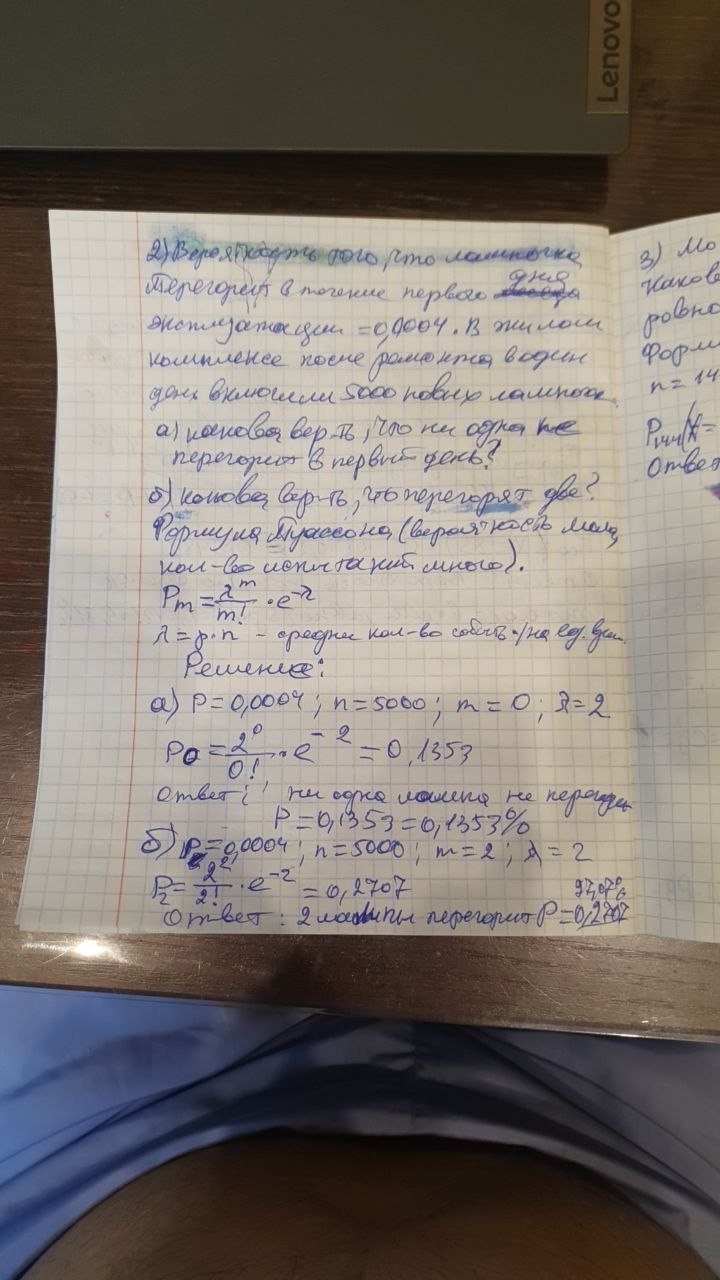 Lenovo
2) Вероятность того, что лампочка
перегорит в течение первого дня
эксплуатации = 0,0004. В жилом
комплексе после ремонта в один
день включили 5000 новых лампочек.
а) какова вер-ть, что ни одна не
перегорит в первый день?
б) какова вер-ть, что перегорят две?
Формула Пуассона (вероятность мала,
кол-во испытаний много).
Pm = λ^m / m! · e^-λ
λ = p·n - средне кол-во событ. / на ед. врем.
Решение:
а) P = 0,0004; n = 5000; m = 0; λ = 2
P0 = 2^0 / 0! · e^-2 = 0,1353
Ответ: ни одна лампа не перегор
P = 0,1353 = 0,1353%
б) P = 0,0004; n = 5000; m = 2; λ = 2
P2 = 2^2 / 2! · e^-2 = 0,2707
27,07%
Ответ: 2 лампы перегорит P = 0,2707
3) Мо
Какова
ровно
Форм
n = 14
Ответ